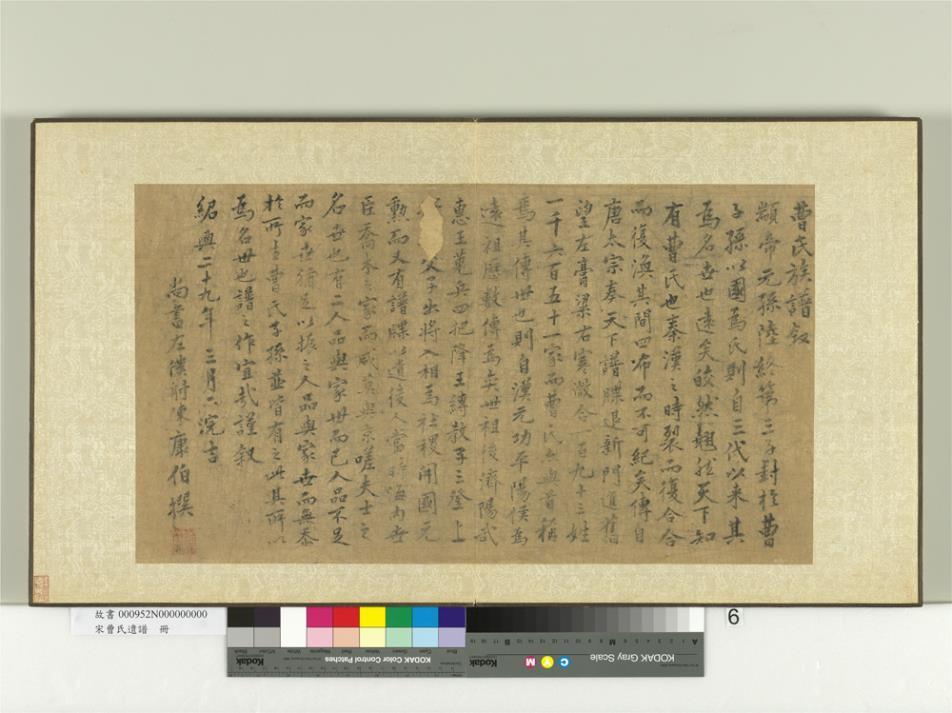 曹氏族譜叙
顓帝元孫陸終第三子封於曹
子孫以國為氏則自三代以来其
為名世也遠矣皎然翹於天下知
有曹氏也秦漢之時裂而復合合
而復渙其間四布而不可紀矣傳自
唐太宗奏天下譜牒退新門進舊
望左膏梁右寒微合二百九十三姓
一千六百五十一家而曹氏
焉其傳世也則自漢元功平陽侯為
遠祖歷數傳為矣世祖後濟陽武
惠王總兵四把降王縛教子三登上
父子出將入相為社稷開國元
勲而又有譜牒以遺後人當時海内世
臣喬木之家而咸莫與京嗟夫士之
名世也有二人品與家世而已人品不足
而家世猶足以振之人品與家世而無忝
於所生曹氏子孫並皆有之此其所以
為名世也譜之作宜哉謹叙
紹興二十九年三月上浣吉
尚書左僕射陳康伯撰
故書 000952N000000000
宋曹氏遺譜 冊
6
KODAK Color Control Patches
KODAK Gray Scale
Kodak
Kodak
C Y M